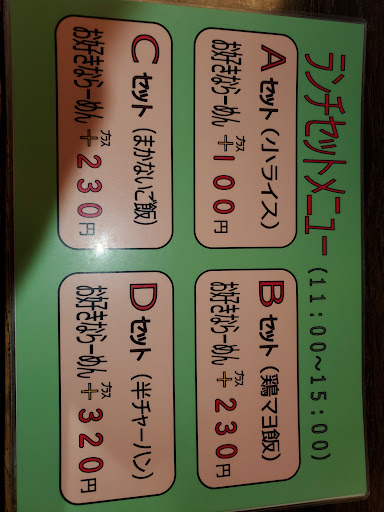 ランチセットメニュー(11:00〜15:00)
Aセット(小ライス)
お好きならーめん+プラス100円
Bセット(鶏マヨ飯)
お好きならーめん+プラス230円
Cセット(まかないご飯)
お好きならーめん+プラス230円
Dセット(半チャーハン)
お好きならーめん+プラス320円